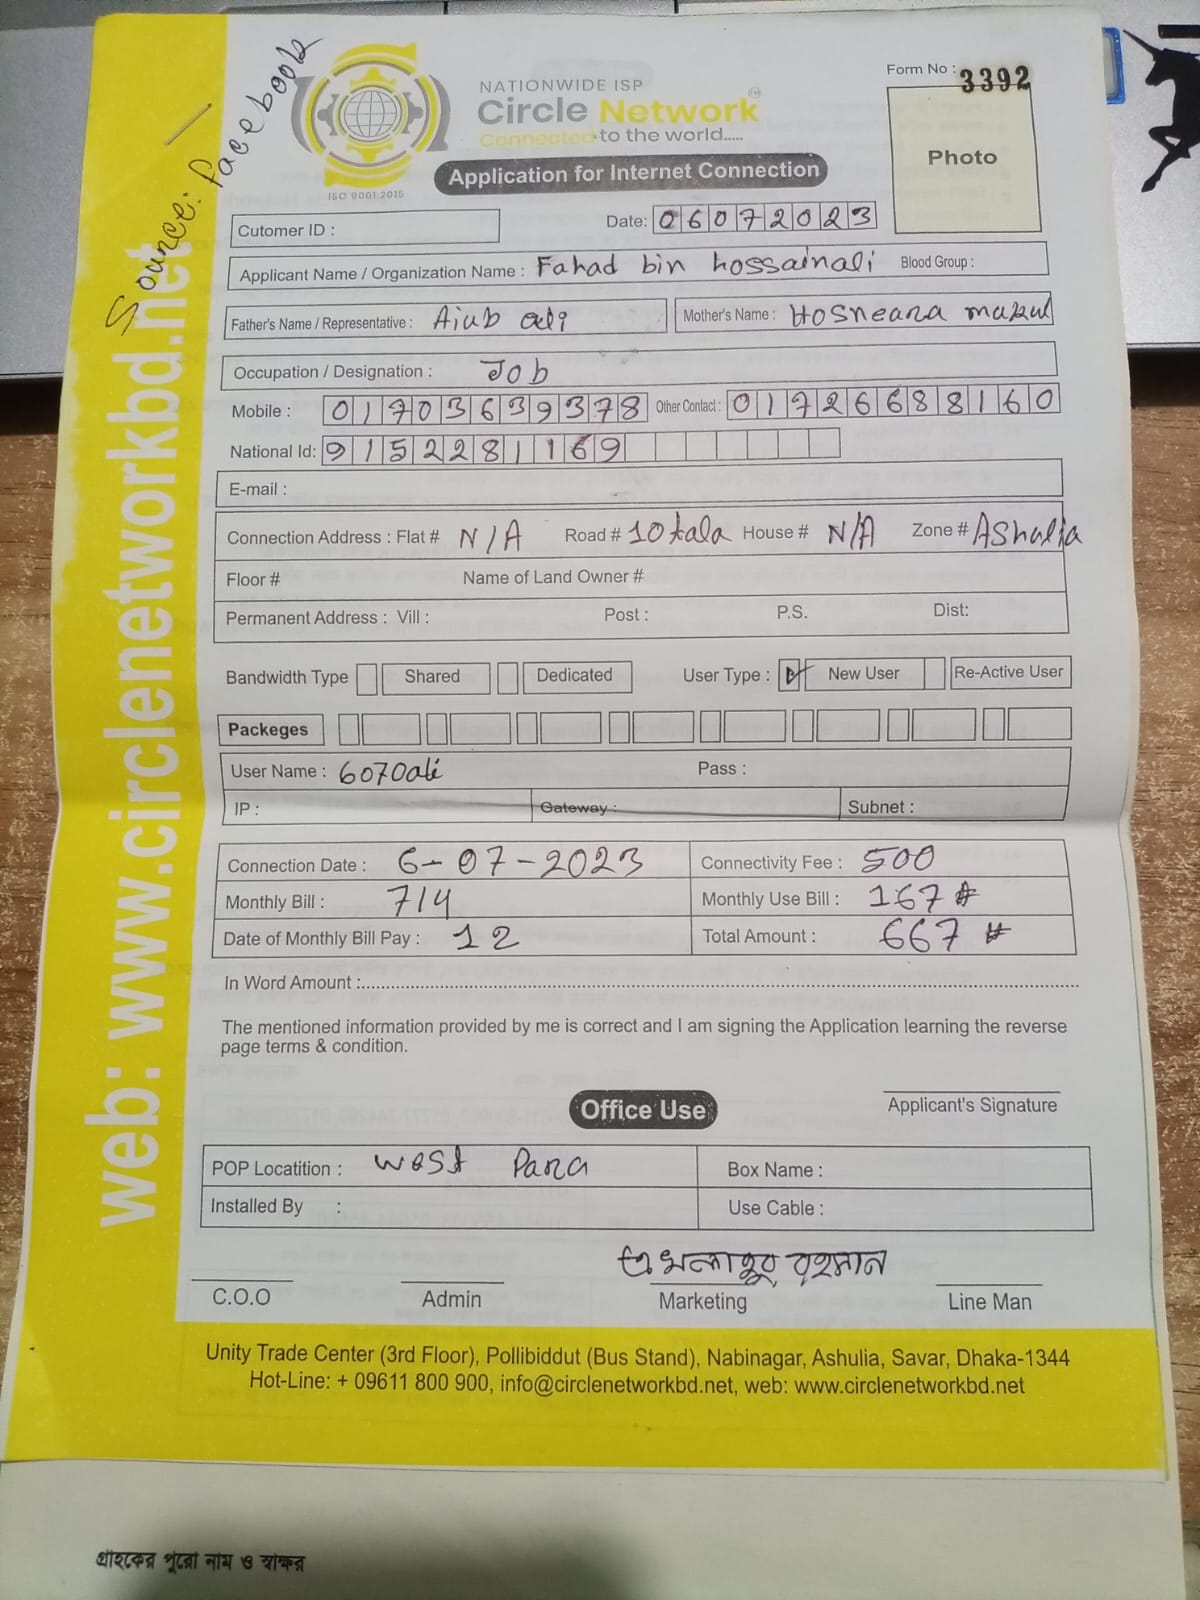 Source: facebook
NATIONWIDE ISP
Circle Network
Connected to the world.....
ISO 9001:2015
Application for Internet Connection
Form No : 3392
Photo
Cutomer ID :
Date: 06072023
Applicant Name / Organization Name : Fahad bin hossainali Blood Group :
Father's Name / Representative : Aiub ali Mother's Name : Hosneara makul
Occupation / Designation : Job
Mobile : 01703639378 Other Contact : 01726688160
National Id: 9152281169
E-mail :
Connection Address : Flat # N/A Road # 10 tala House # N/A Zone # AShulia
Floor # Name of Land Owner #
Permanent Address : Vill : Post : P.S. Dist:
Bandwidth Type Shared Dedicated User Type : New User Re-Active User
Packeges
User Name : 6070ali Pass :
IP : Gateway : Subnet :
Connection Date : 6-07-2023 Connectivity Fee : 500
Monthly Bill : 714 Monthly Use Bill : 167 #
Date of Monthly Bill Pay : 12 Total Amount : 667 #
In Word Amount :
The mentioned information provided by me is correct and I am signing the Application learning the reverse
page terms & condition.
Applicant's Signature
Office Use
POP Locatition : West Para Box Name :
Installed By : Use Cable :
রহমান
C.O.O Admin Marketing Line Man
Unity Trade Center (3rd Floor), Pollibiddut (Bus Stand), Nabinagar, Ashulia, Savar, Dhaka-1344
Hot-Line: + 09611 800 900, info@circlenetworkbd.net, web: www.circlenetworkbd.net
web: www.circlenetworkbd.net
গ্রাহকের পুরো নাম ও স্বাক্ষর